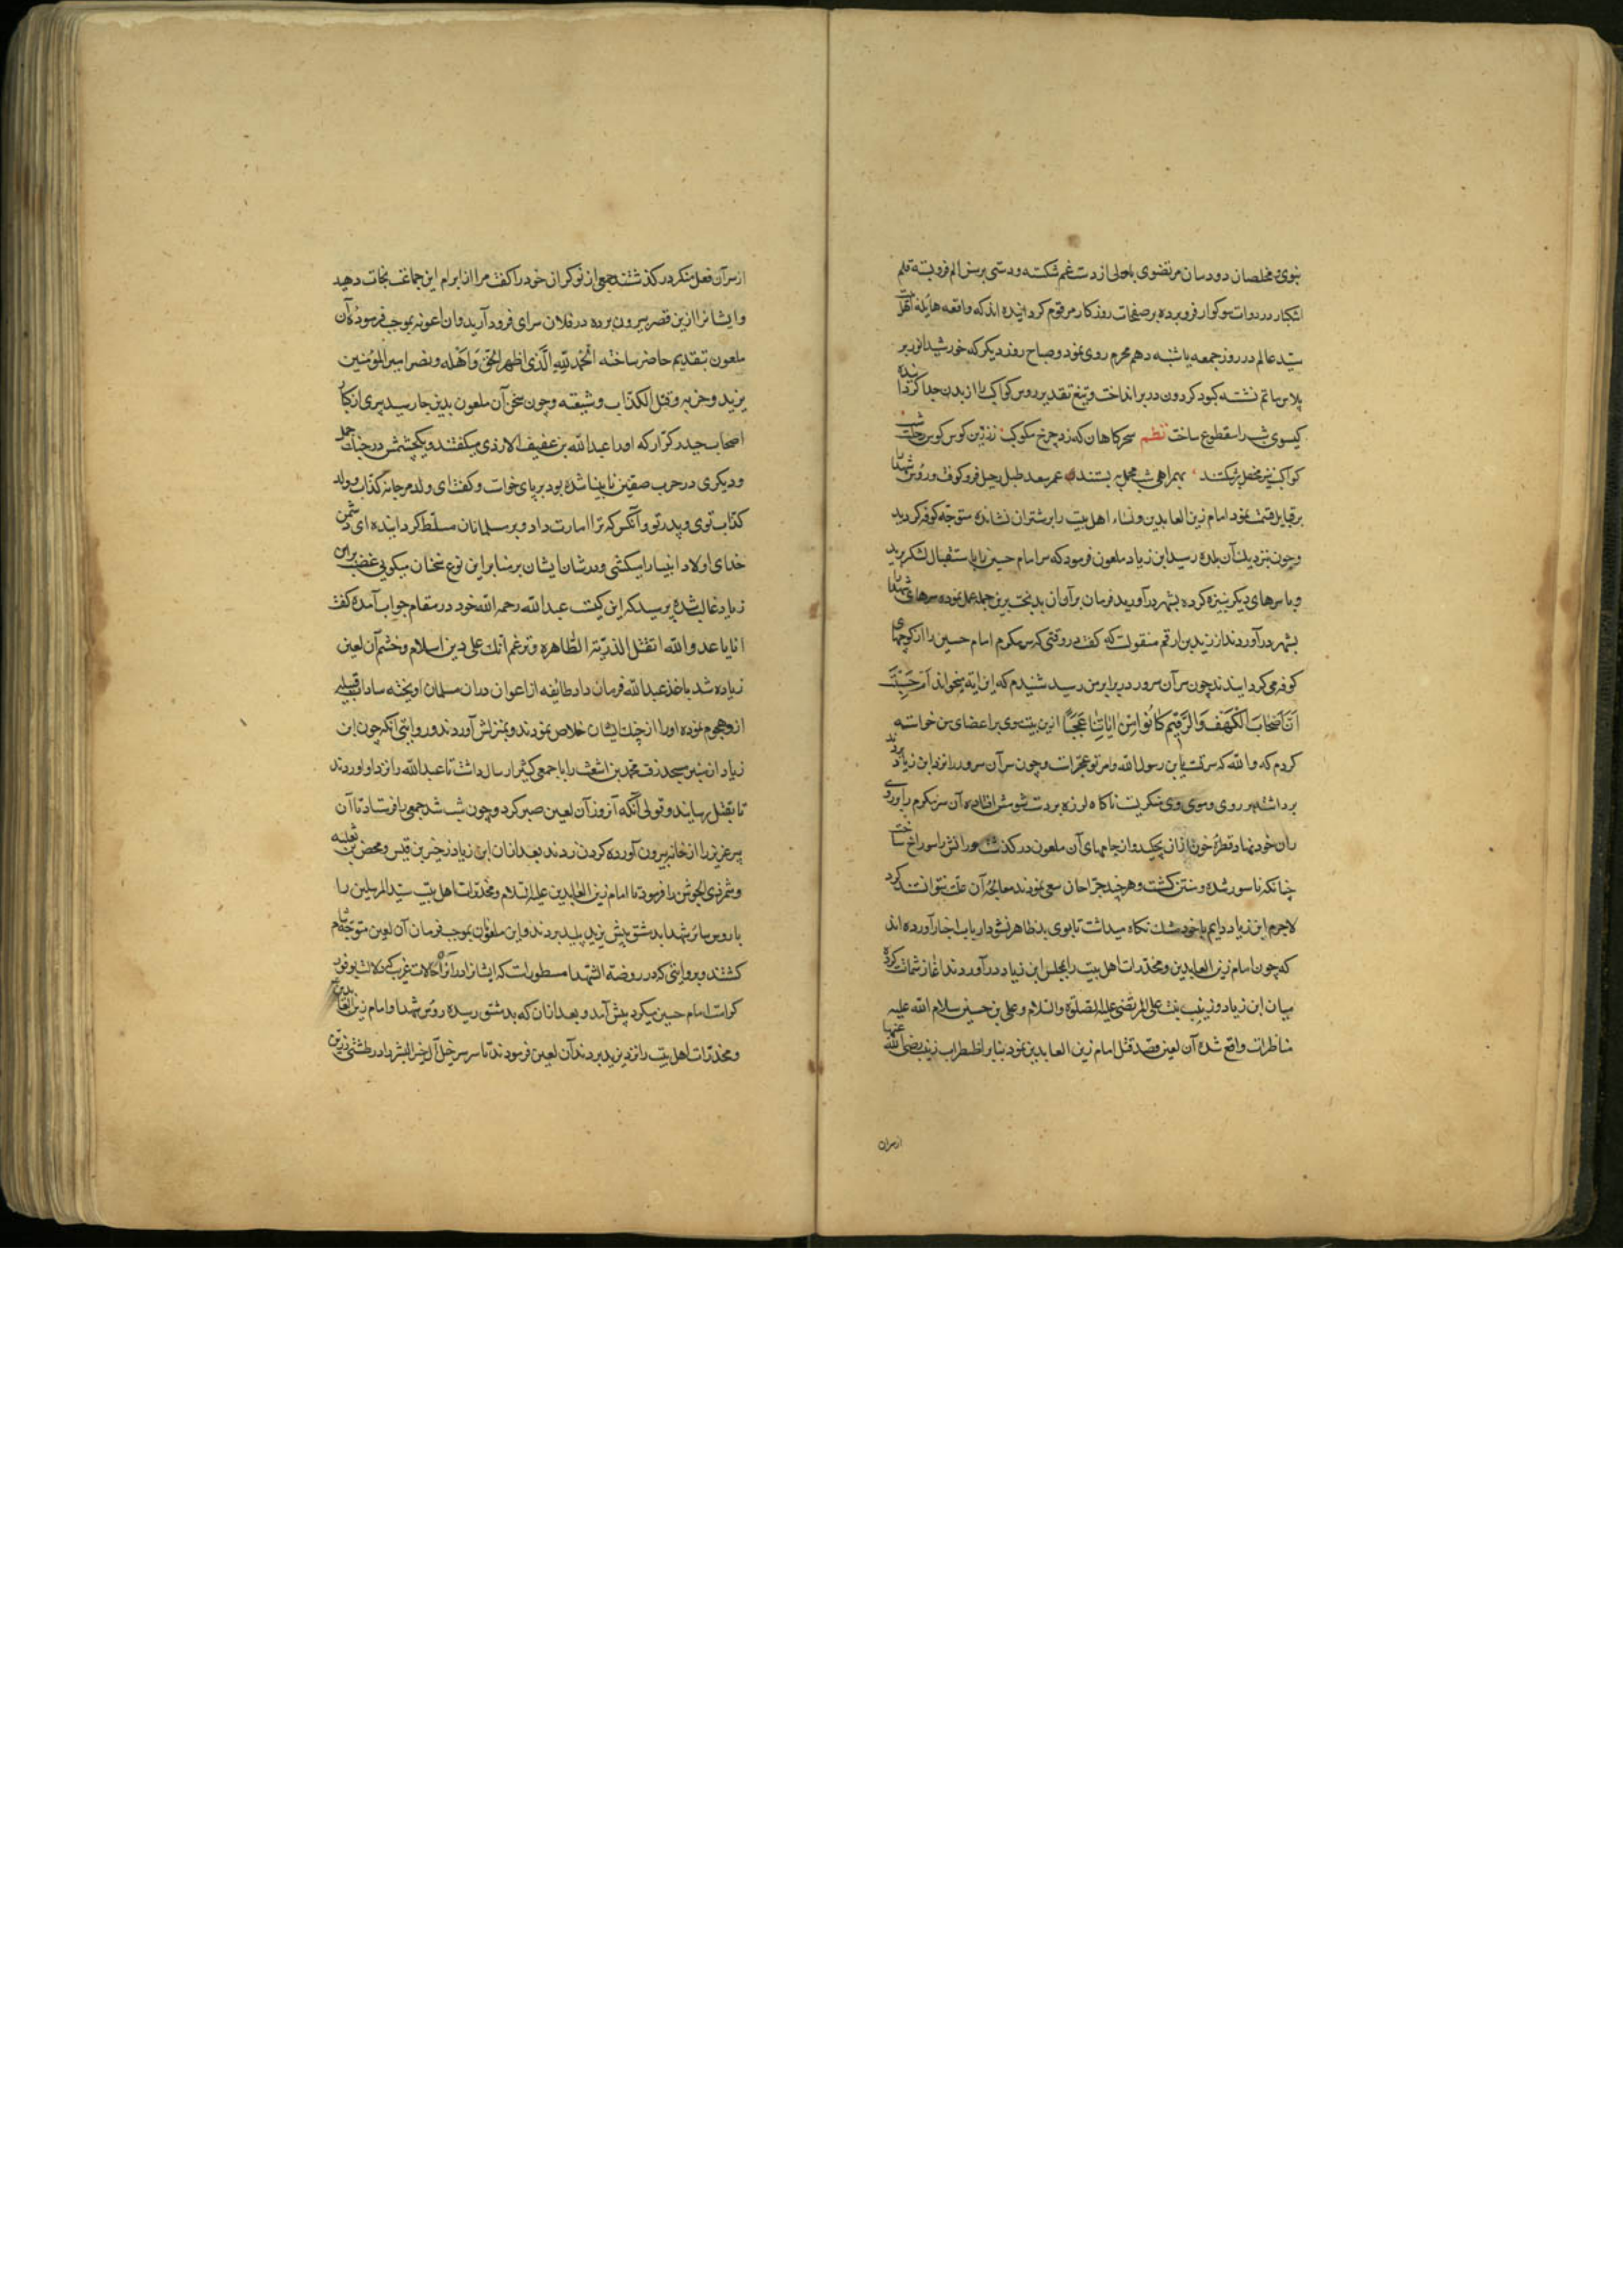 نبوی و مخلصان دودمان مرتضوی با دلی از دست غم شکسته و دستی بر سر الم فروبسته قلم
اشکبار در دوات سوکوار فرو برده بر صفحات روزکار مرقوم کردانیده اند که واقعه هایله اهل بیت
سید عالم در روز جمعه یا شنبه دهم محرم روی نمود و صباح روز دیکر که خورشید انور بر
پلاس ماتم نشسته کبود کردون در بر انداخت و تیغ تقدیر رؤس کواکب را از بدن جدا کرداننده
کیسوی شب را مقطوع ساخت نظم سحرکاهان که زد چرخ مکوکب زرین کوس کوس رحلت شب
کواکب نیز محفل برشکستند بهمراهی شب محمل به بستند عمر سعد طبل رحیل فرو کوفت و رؤس شهدا را
بر قبایل قسمت نمود امام زین العابدین و نساء اهل بیت را بر شتران نشانده متوجه کوفه کردید
و چون نزدیک آن بلده رسید ابن زیاد ملعون فرمود که سر امام حسین را باستقبال لشکر برید
و با سرهای دیکر بنیزه کرده بشهر درآورید فرمان برآوان بدبخت برین جمله عمل نموده سرهای شهدا را
بشهر درآوردند از زید بن ارقم منقولست که کفت در وقتی که سر مکرم امام حسین را در کوچهای
کوفه می کردانیدند چون سر آن سرور در برابر من رسید شنیدم که این آیه میخواند ام حسبت
ان اصحاب الکهف والرقیم کانوا من ایاتنا عجبا ازین هیبت موی بر اعضای من خواسته
کردم که والله که سر تست یا ابن رسول الله و امر تو عجبتر است و چون سر آن سرور را نزد ابن زیاد بردند
برداشته در روی و موی وی نکریست ناکاه لرزه بر دست شومش افتاده آن سر مکرم را بر روی
ران خود نهاد قطره خون ازان بچکید و از جامهای آن ملعون درکذشته و رانش را سوراخ ساخت
چنانکه ناسور شده و منتن کشت و هر چند جراحان سعی نمودند معالجه آن علت نتوانستند کرد
لاجرم ابن زیاد دایم با خود مشک نکاه میداشت تا بوی بد ظاهر نشود ارباب اخبار آورده اند
که چون امام زین العابدین و مخدرات اهل بیت را بمجلس ابن زیاد درآوردند آغاز شماتت کرده
میان ابن زیاد و زینب بنت علی المرتضی علیه الصلوة والسلام و علی بن حسین سلام الله علیه
مناظرات واقع شده آن لعین قصد قتل امام زین العابدین نمود بنابر اضطراب زینب رضی الله عنها
از سر آن
از سر آن فعل منکر درکذشته جمعی از نوکران خود را کفت مرا از ابرام این جماعت نجات دهید
و ایشانرا ازین قصر بیرون برده در فلان سرای فرود آرید وان اعونه بموجب فرموده آن
ملعون بتقدیم حاضر ساخته الحمد لله الذی اظهر الحق و اهله و نصر امیر المؤمنین
یزید و حزبه و قتل الکذاب و شیعته و چون سخن آن ملعون بدین جا رسید پیری از کبار
اصحاب حیدر کرار که او را عبدالله بن عفیف الازدی میکفتند و یکچشمش در حرب جمل
و دیکری در حرب صفین نابینا شده بود بر پای خواست و کفت ای ولد مرجانه کذاب و ولد
کذاب توی و پدر تو و آنکس که ترا امارت داد و بر مسلمانان مسلط کردانیده ای دشمن
خدای اولاد انبیا را میکشی و در شان ایشان بر منابر این نوع سخنان میکویی غضب بر ابن
زیاد غالب شده پرسید که این کیست عبدالله رحمه الله خود در مقام جواب آمده کفت
انا یا عدو الله اتقتل الذریة الطاهره و تزعم انک علی دین اسلام و خشم آن لعین
زیاده شد باخذ عبدالله فرمان داد طایفه از اعوان دران مسلمان اویخته سادات قبیله
ازد هجوم نموده او را از چنک ایشان خلاص نمودند و بمنزلش آوردند و روایتی آنکه چون ابن
زیاد از منبر بیجد رفت محمد بن اشعث را با جمعی کثیر ارسال داشت تا عبدالله را نزد او آوردند
تا بقتل رسانید و قولی آنکه آنروز آن لعین صبر کرد و چون شب شد جمعی را فرستاد تا آن
پیر عزیز را از خانه بیرون آورده کردن زدند بعد ازان ابن زیاد زحر بن قیس و محضر بن ثعلبه
و شمر ذی الجوشن را فرمود تا امام زین العابدین علیه السلام و مخدرات اهل بیت سید المرسلین را
با رؤس سائر شهدا بدمشق پیش یزید پلید بردند و این ملعونان بموجب فرمان آن لعین متوجه شام
کشتند و بروایتی که در روضة الشهدا مسطورست که ایشانرا در راه حالات غریب که دلالت بر وفور
کرامت امام حسین میکرد پیش آمد و بعد ازان که بدمشق رسیده رؤس شهدا و امام زین العابدین
و مخدرات اهل بیت را نزد یزید بردند آن لعین فرمود تا سر سرخیل آل خیر البشر را در طشتی زرین